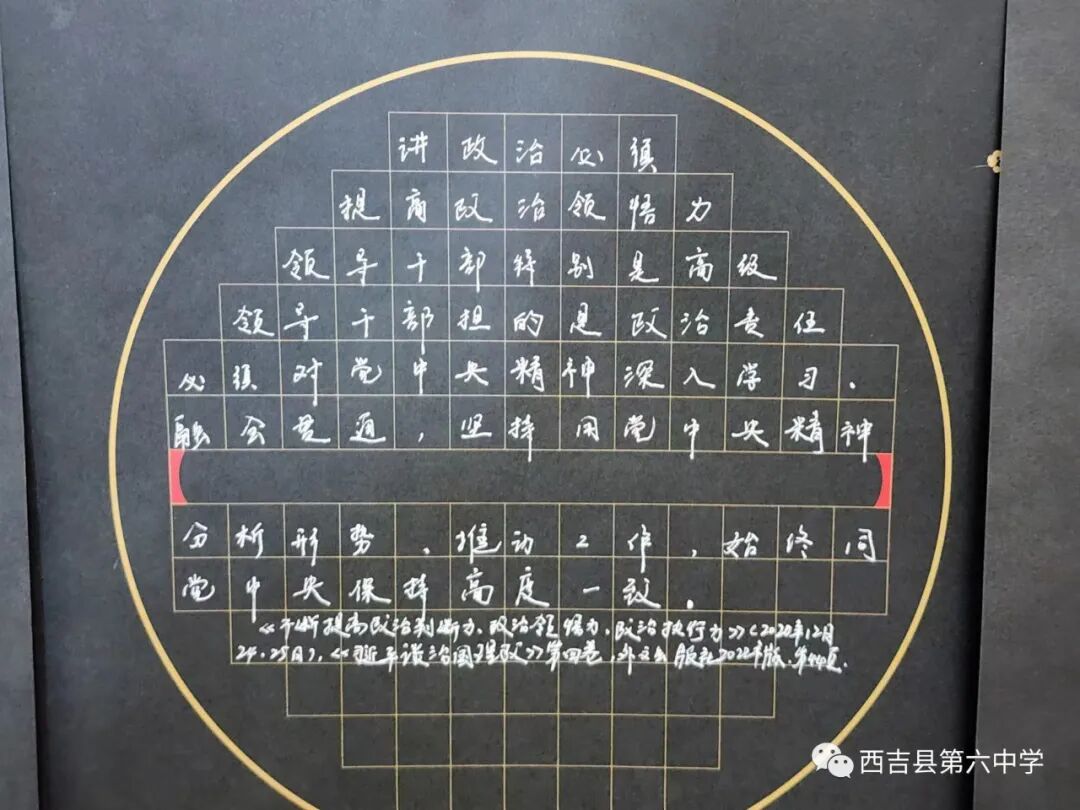 讲政治必须
提高政治领悟力
领导干部特别是高级
领导干部担的是政治责任
必须对党中央精神深入学习、
融会贯通，坚持用党中央精神
分析形势、推动工作，始终同
党中央保持高度一致。
《不断提高政治判断力、政治领悟力、政治执行力》（2020年12月
24、25日），《习近平谈治国理政》第四卷，外文出版社2022年版，第44页.
西吉县第六中学